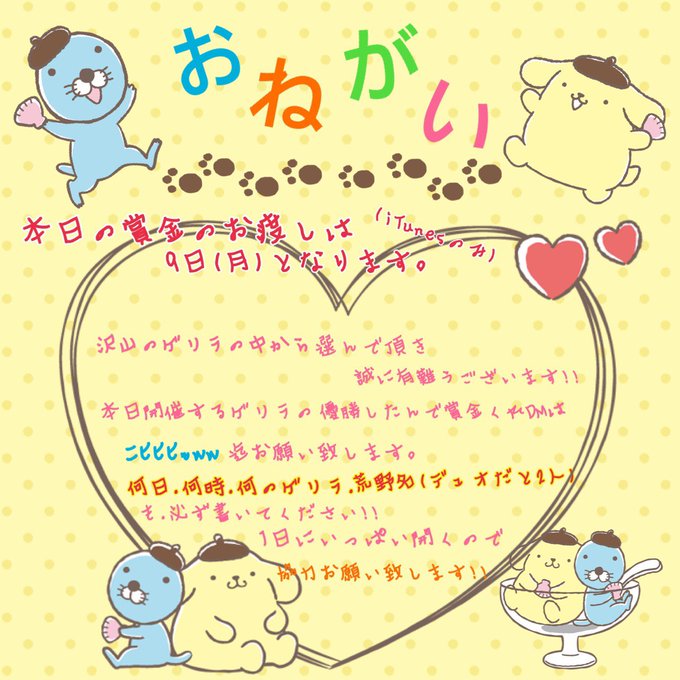 おねがい
本日の賞金のお渡しは(iTunesのみ)
9日(月)となります。
沢山のゲリラの中から選んで頂き
誠に有難うございます!!
本日開催するゲリラの優勝したんで賞金くれDMは
ニピピピwww迄お願い致します。
何日.何時.何のゲリラ.荒野名(デュオだと2人)
を.必ず書いてください!!
1日にいっぱい開くので
協力お願い致します!!